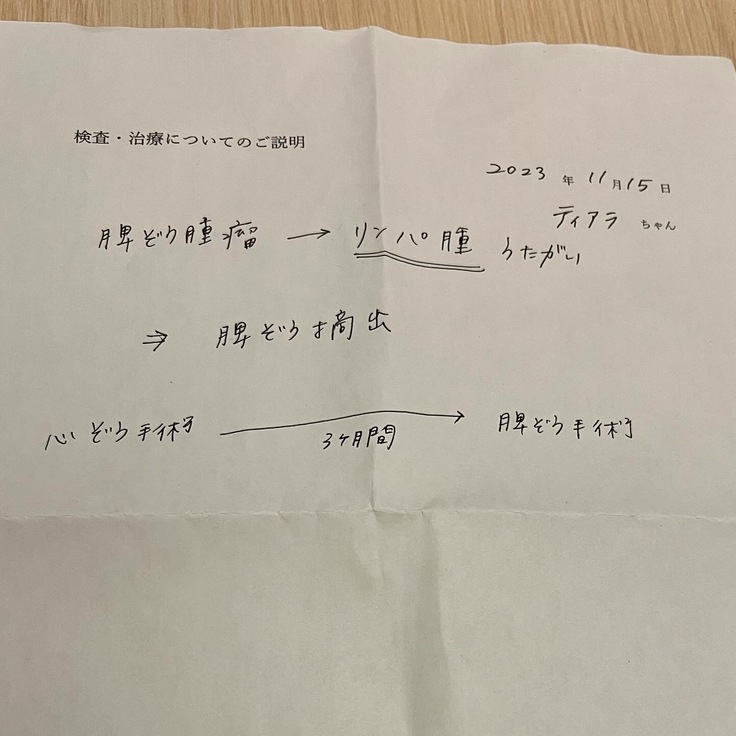 検査・治療についてのご説明
2023年11月15日
ティアラちゃん
脾ぞう腫瘤 → リンパ腫 うたがい
⇒ 脾ぞう摘出
心ぞう手術 → 脾ぞう手術
3ヶ月間